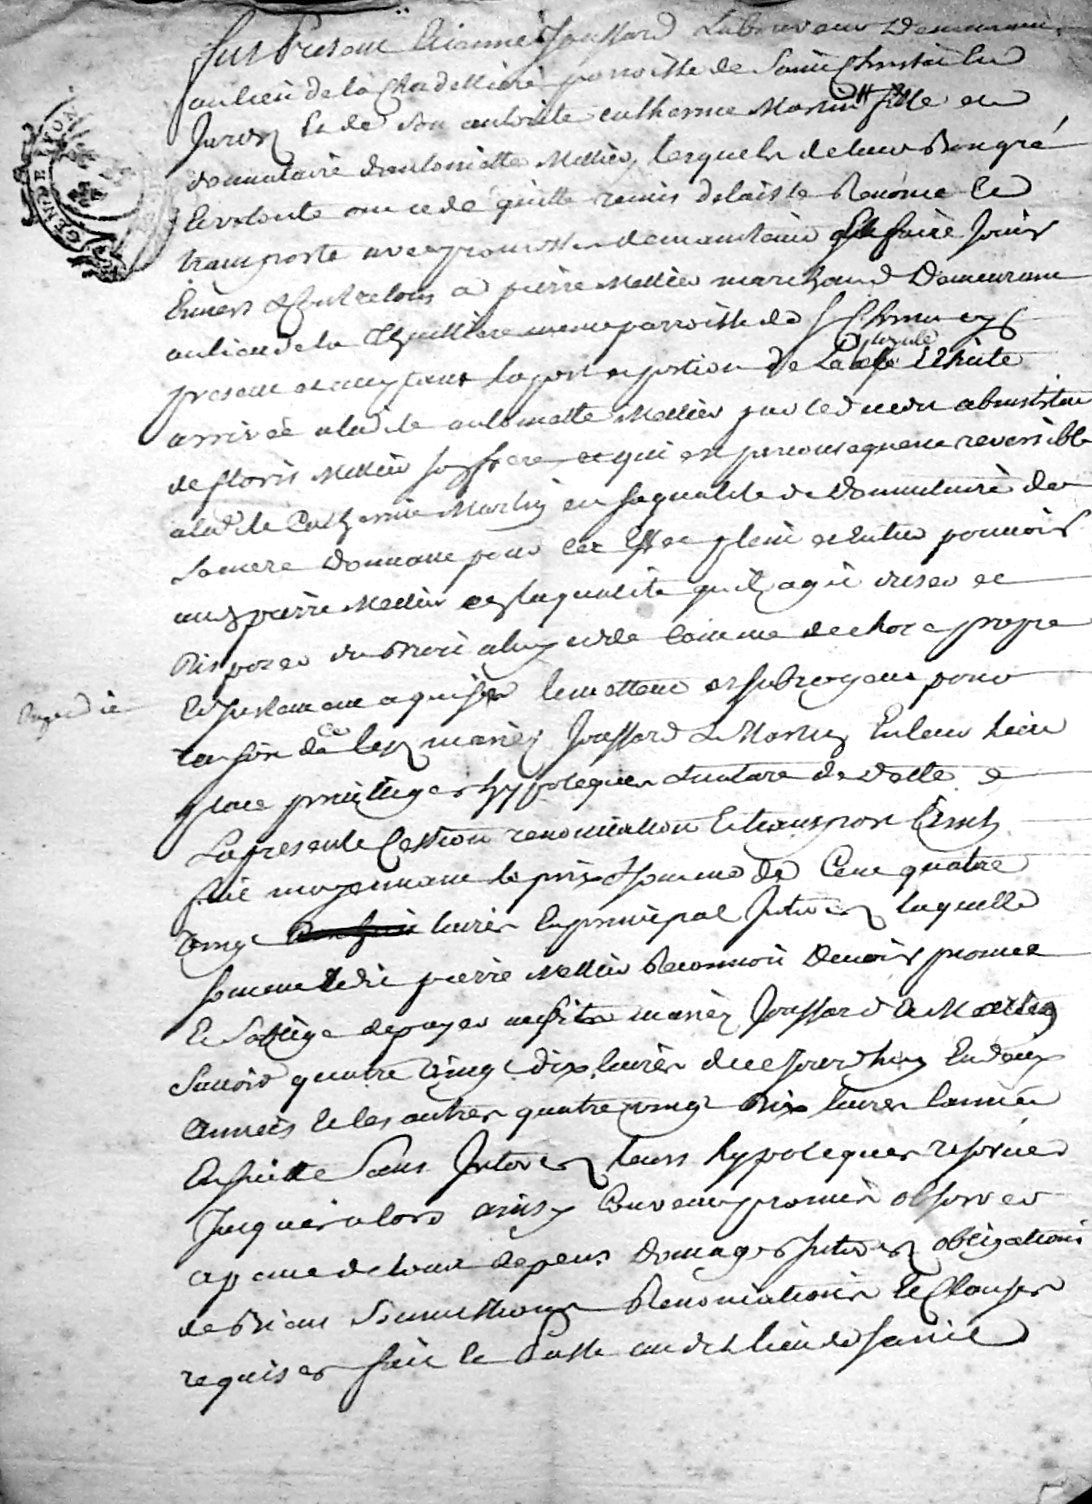 Fut Present Etienne Joussard Laboureur Demeurant
au lieu de la Chardelliere parroisse de Saint Christo en
Jarez Et de Son authorité catherine Martin fille et
donnataire d'antoinette Mellier, lesquels de leur Bon gré
Et volonté ont cedé quitté remis delaissé Renoncé Et
transporté avec promesse de maintenir & faire Jouir
Envers & Contre tous a pierre Mellier marchand Demeurant
au lieu de la Thuilliere meme parroisse de St Christo
present et acceptant la part et portion de Echute
arrivée a ladite antoinette Mellier par le deceds abintestat
de floris Mellier son frere et qui est par consequent reversible
a ladte Catherine Martin en sa qualité de Donnataire de
Sa mere Donnant pour cet Effet plein et Entier pouvoir
audt pierre Mellier en la qualité qu'il agit d'user et
Disposer du Droit a luy cedé Comme de chose propre
Et justement aquise le mettant et subrogeant pour
raison de ce lesdts mariés Joussard & Martin En leur Lieu
place privilleges hypoteques & nature de dette &
La presente Cession renonciation Et transport Ainsy
fait moyennant le prix & Somme de Cent quatre
vingt livres En principal Interets laquelle
Somme Ledit pierre Mellier Reconnoit Devoir promet
Et S'oblige de payer auxdits mariés Joussard & Martin
Sçavoir quatre vingt dix livres dicy En deux
Années Et les autres quatre vingt Dix livres l'année
Ensuitte Sans Interets leurs hypoteques reservées
Jusques alors ainsy Convenu promis observer
a peine de tous depens Domages Interets obligations
de Biens Soumissions Renonciations Et Clauses
requises fait Et Passé audit lieu de Saint